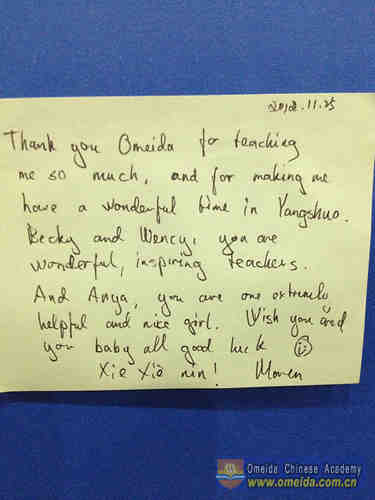 2012.11.25
Thank you Omeida for teaching
me so much, and for making me
have a wonderful time in Yangshuo.
Becky and Wency, you are
wonderful, inspiring teachers.
And Anya, you are one extremely
helpful and nice girl. Wish you and
you baby all good luck ☺
Xie Xie nin!
Omeida Chinese Academy
www.omeida.com.cn